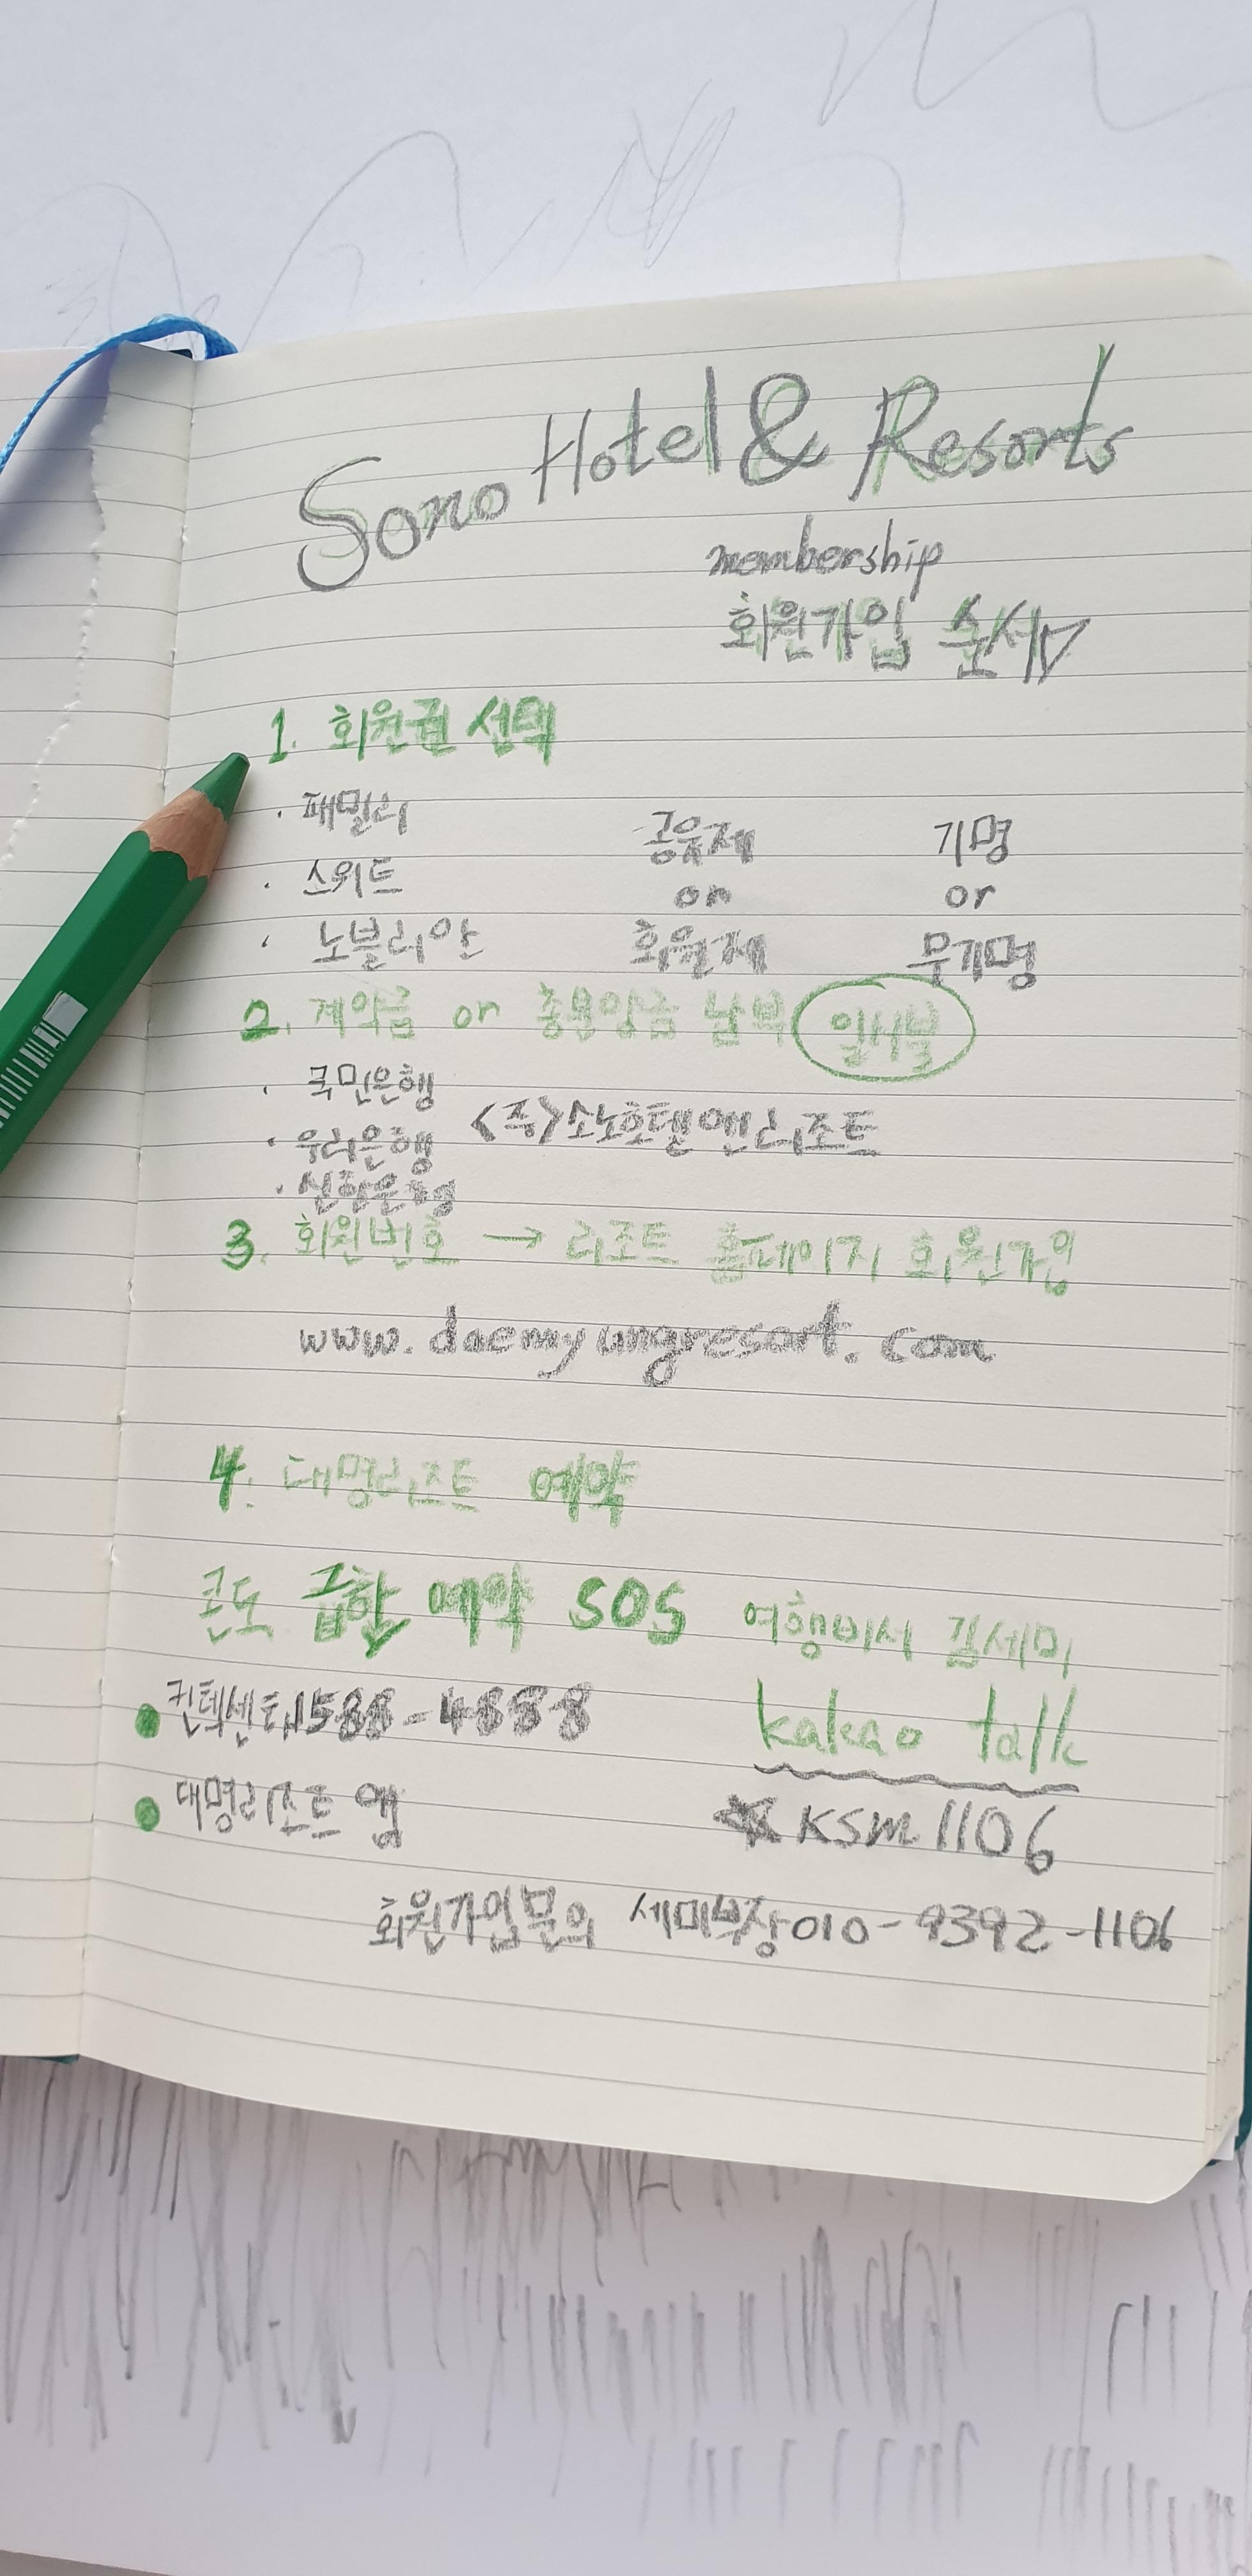 Sono Hotel & Resorts
membership
회원가입 순서▽
1. 회원권 선택
· 패밀리 공유제 기명
· 스위트 or or
· 노블리안 회원제 무기명
2. 계약금 or 총분양금 납부 일시불
· 국민은행
· 우리은행 <주>소노호텔앤리조트
· 신한은행
3. 회원번호 → 리조트 홈페이지 회원가입
www.daemyungresort.com
4. 대명리조트 예약
콘도 급할 예약 SOS 여행비서 김세미
● 컨텍센터 1588-4888 kakao talk
● 대명리조트 앱 ★ KSM1106
회원가입문의 세미부장 010-9392-1106